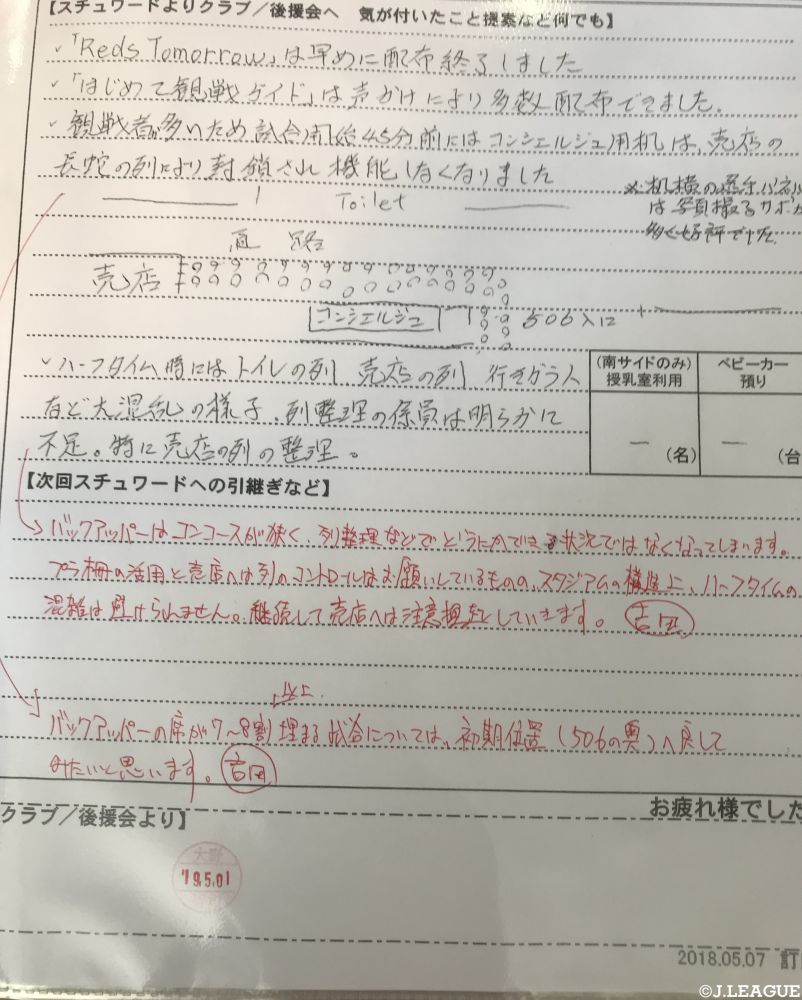 【スチュワードよりクラブ／後援会へ 気が付いたこと提案など何でも】
✓「Reds Tomorrow」は早めに配布終了しました
✓「はじめて観戦ガイド」は声かけにより多数配布できました。
✓観戦者が多いため試合開始45分前にはコンシェルジュ用机は、売店の
長蛇の列により封鎖され機能しなくなりました
※机横の選手パネル
は写真撮る
多く好評でした
Toilet
通路
売店
コンシェルジュ
506入口
✓ハーフタイム時にはトイレの列 売店の列 行きかう人
など大混乱の様子、列整理の係員は明らかに
不足。特に売店の列の整理。
(南サイドのみ)
授乳室利用
ベビーカー
預り
ー (名)
ー (台
【次回スチュワードへの引継ぎなど】
バックアッパーはコンコースが狭く、列整理などでどうにかできる状況ではなくなってしまいます。
プラ柵の活用と売店へは列のコントロールはお願いしているものの、スタジアムの構造上、ハーフタイムの
混雑は避けられません。継続して売店へは注意喚起していきます。 吉田
以上
バックアッパーの席が7〜8割埋まる試合については、初期位置(506の奥)へ戻して
みたいと思います。 吉田
お疲れ様でした
クラブ／後援会より】
'19.5.01
2018.05.07 訂
©J.LEAGUE